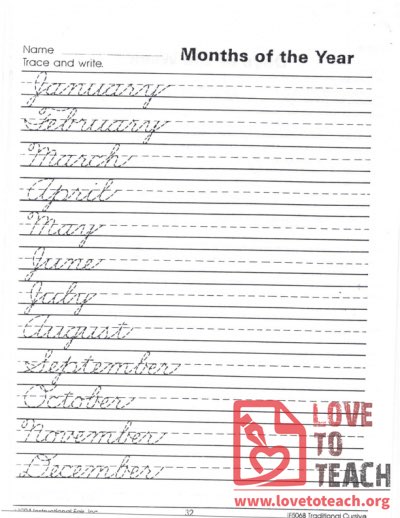 Name
Months of the Year
Trace and write.
January
February
March
April
May
June
July
August
September
October
November
December
LOVE
TO
TEACH
www.lovetoteach.org
32
IF0068 Traditional Cursive